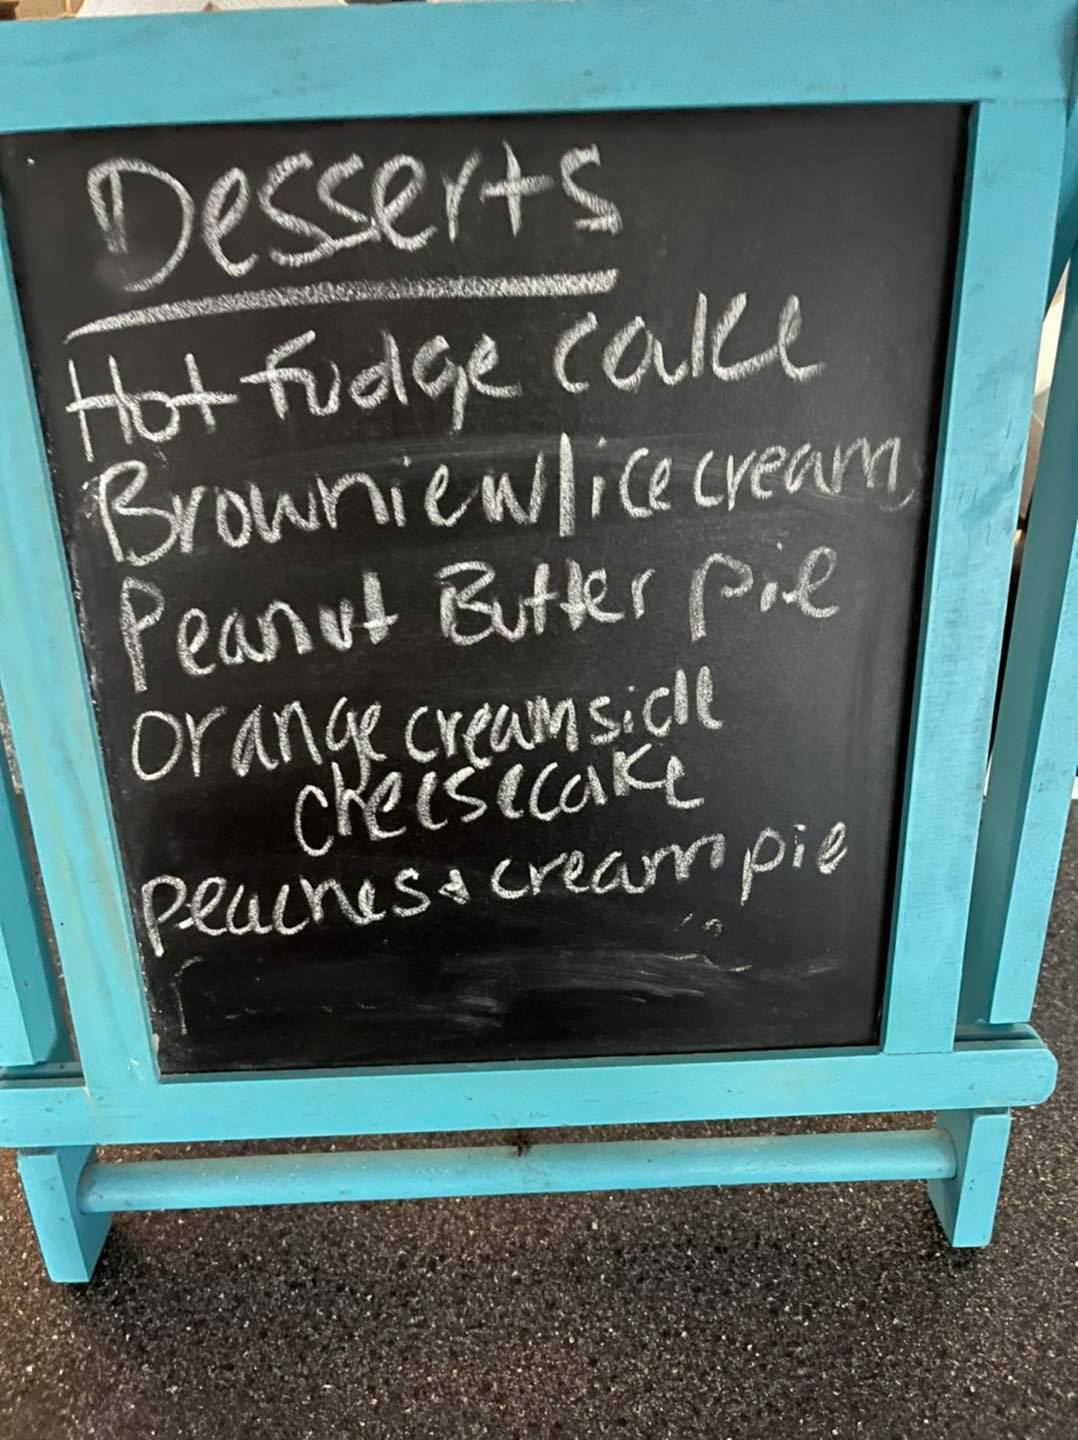 Desserts
Hot fudge cake
Brownie w/ice cream
Peanut Butter pie
orange creamsicle
cheesecake
peaches & cream pie